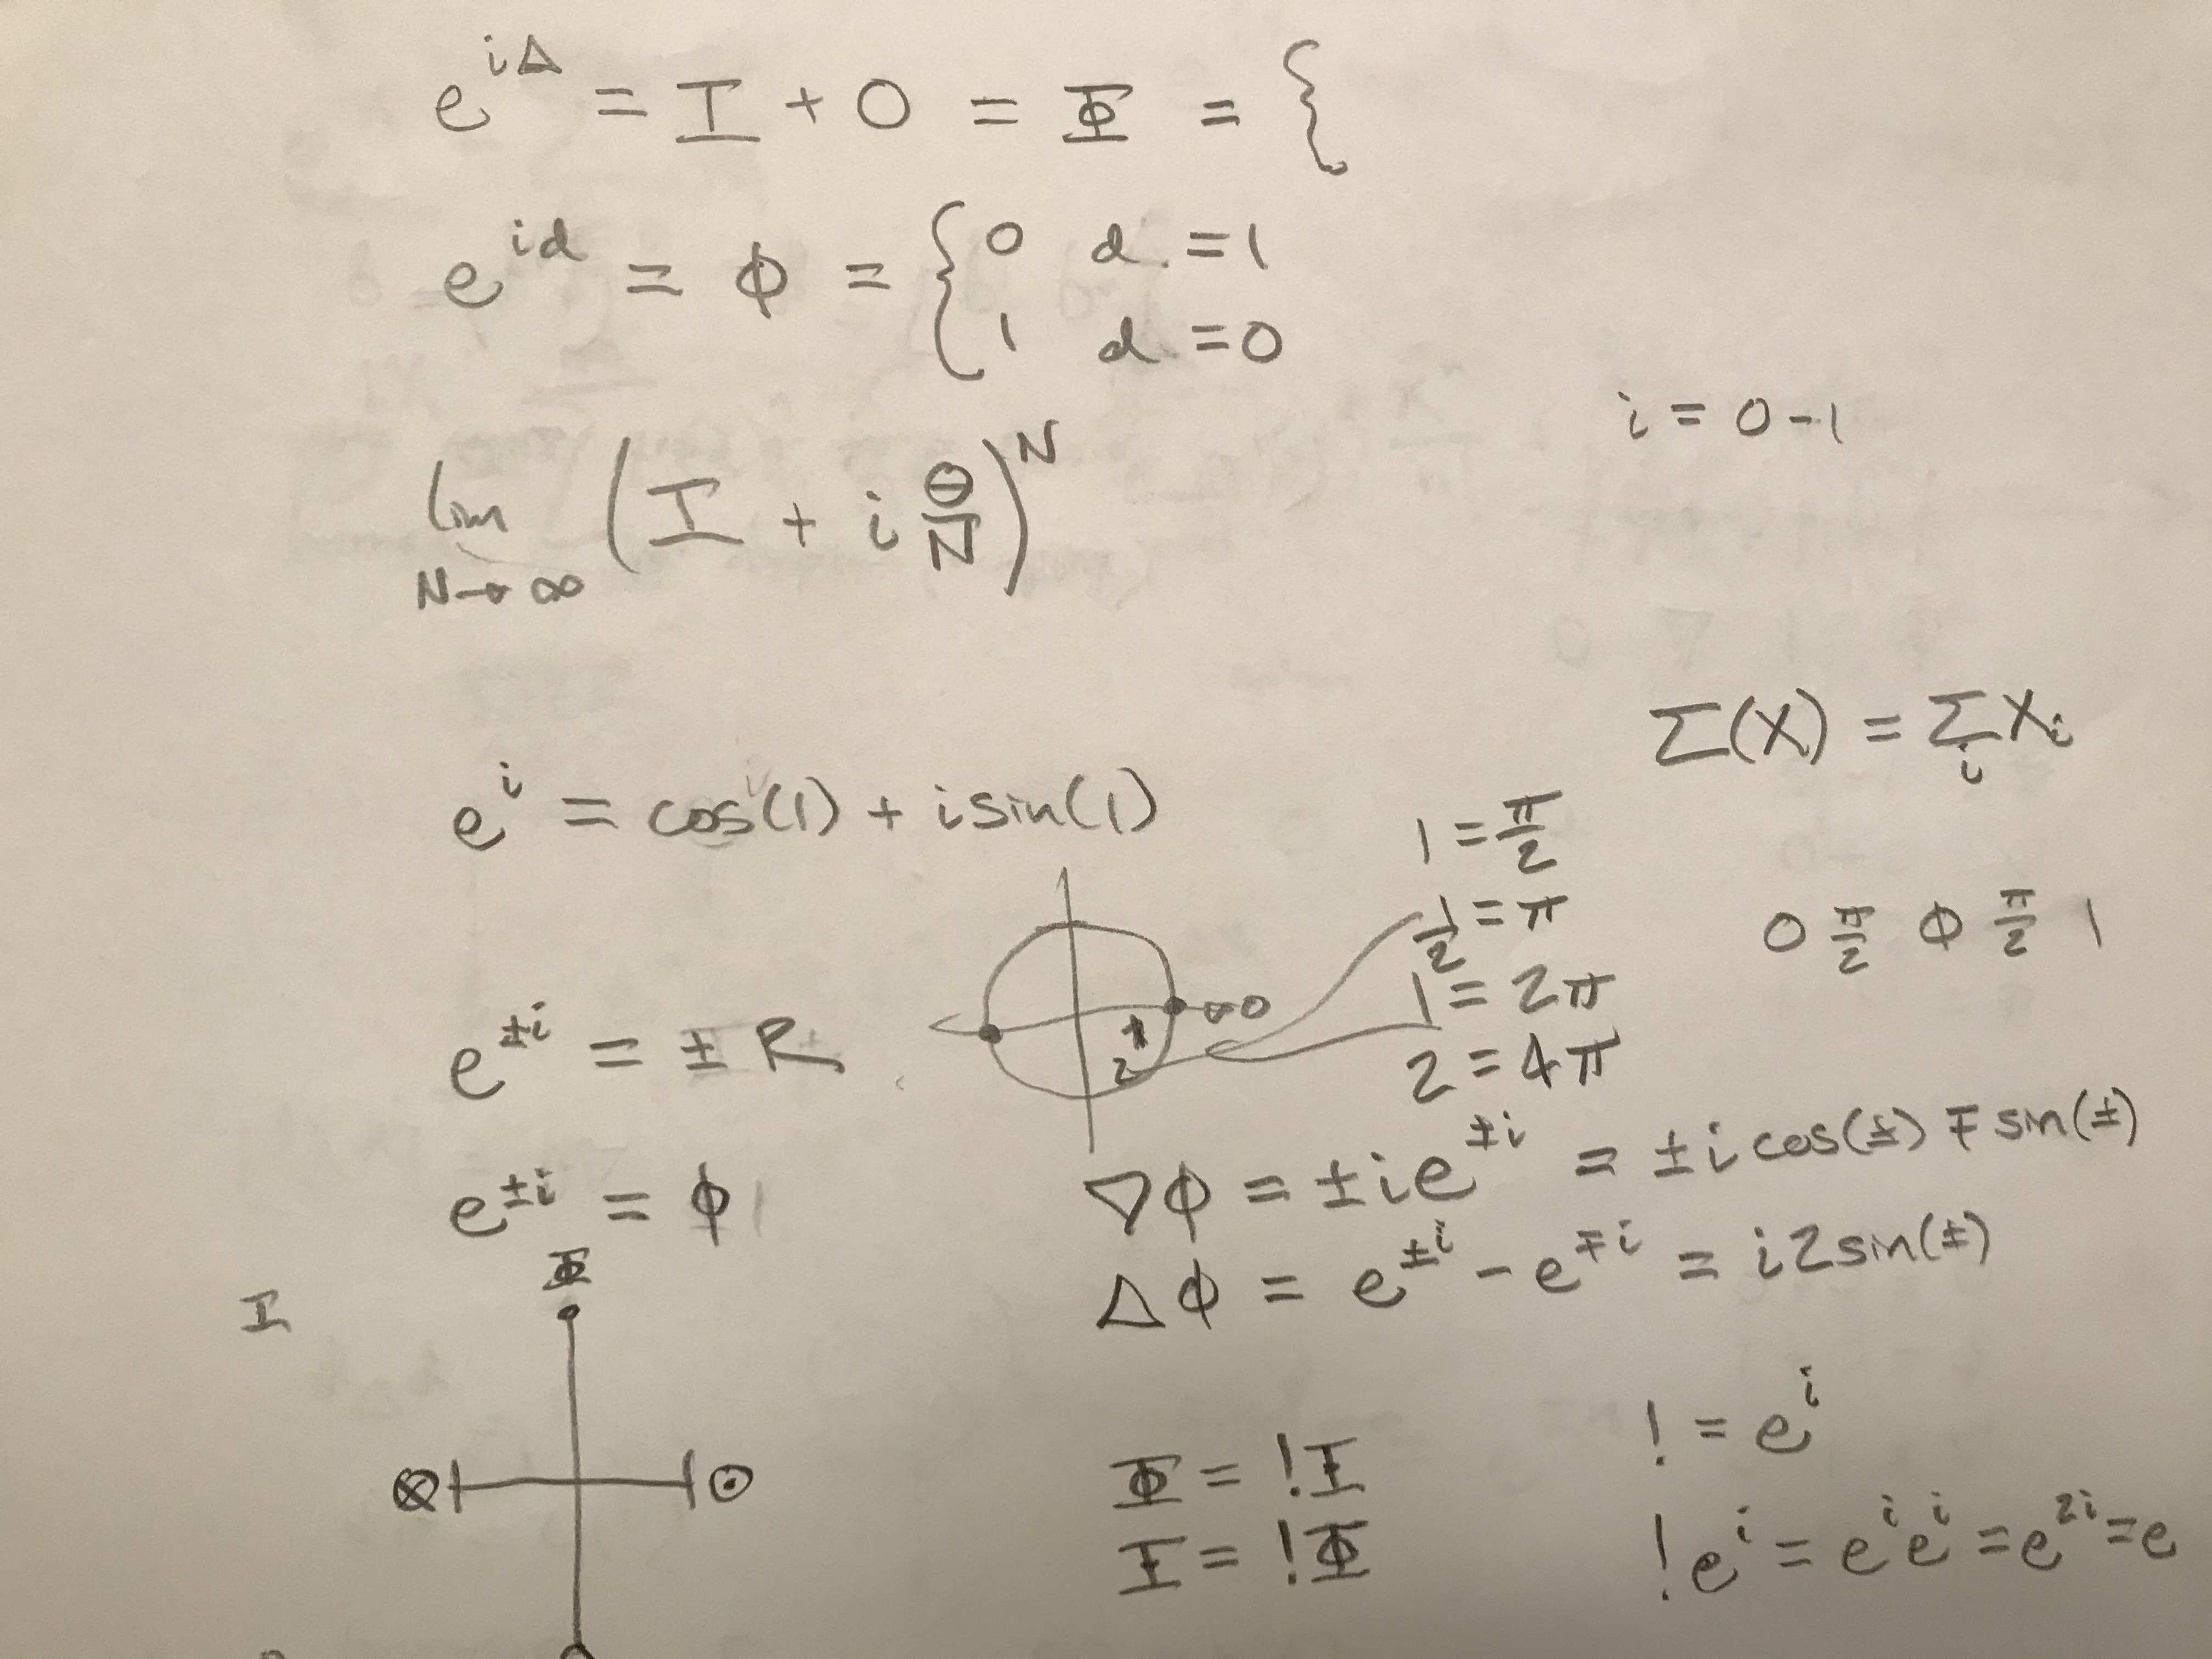 e^{iΔ} = I + O = Φ = {
e^{id} = φ = { 0 d. = 1
1 d. = 0
i = 0 - 1
lim_{N→∞} (I + i Θ/N)^N
Σ(X) = Σ_i X_i
e^i = cos(1) + i sin(1)
1 = π/2
1/2 = π
0 π/2 φ π/2 1
1 = 2π
0
2 = 4π
e^{±i} = ± R
∇φ = ±ie^{±i} = ±i cos(±) ∓ sin(±)
e^{±i} = φ
Δφ = e^{±i} - e^{∓i} = i2sin(±)
Φ
I
! = e^i
Φ = !I
⊗ ⊙
I = !Φ
!e^i = e^i e^i = e^{2i} = e